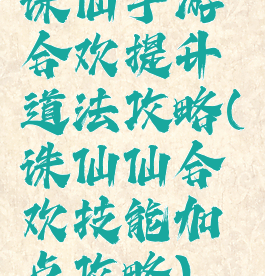 诛仙手游
合欢提升
道法攻略(
诛仙仙合
欢技能加
点攻略)